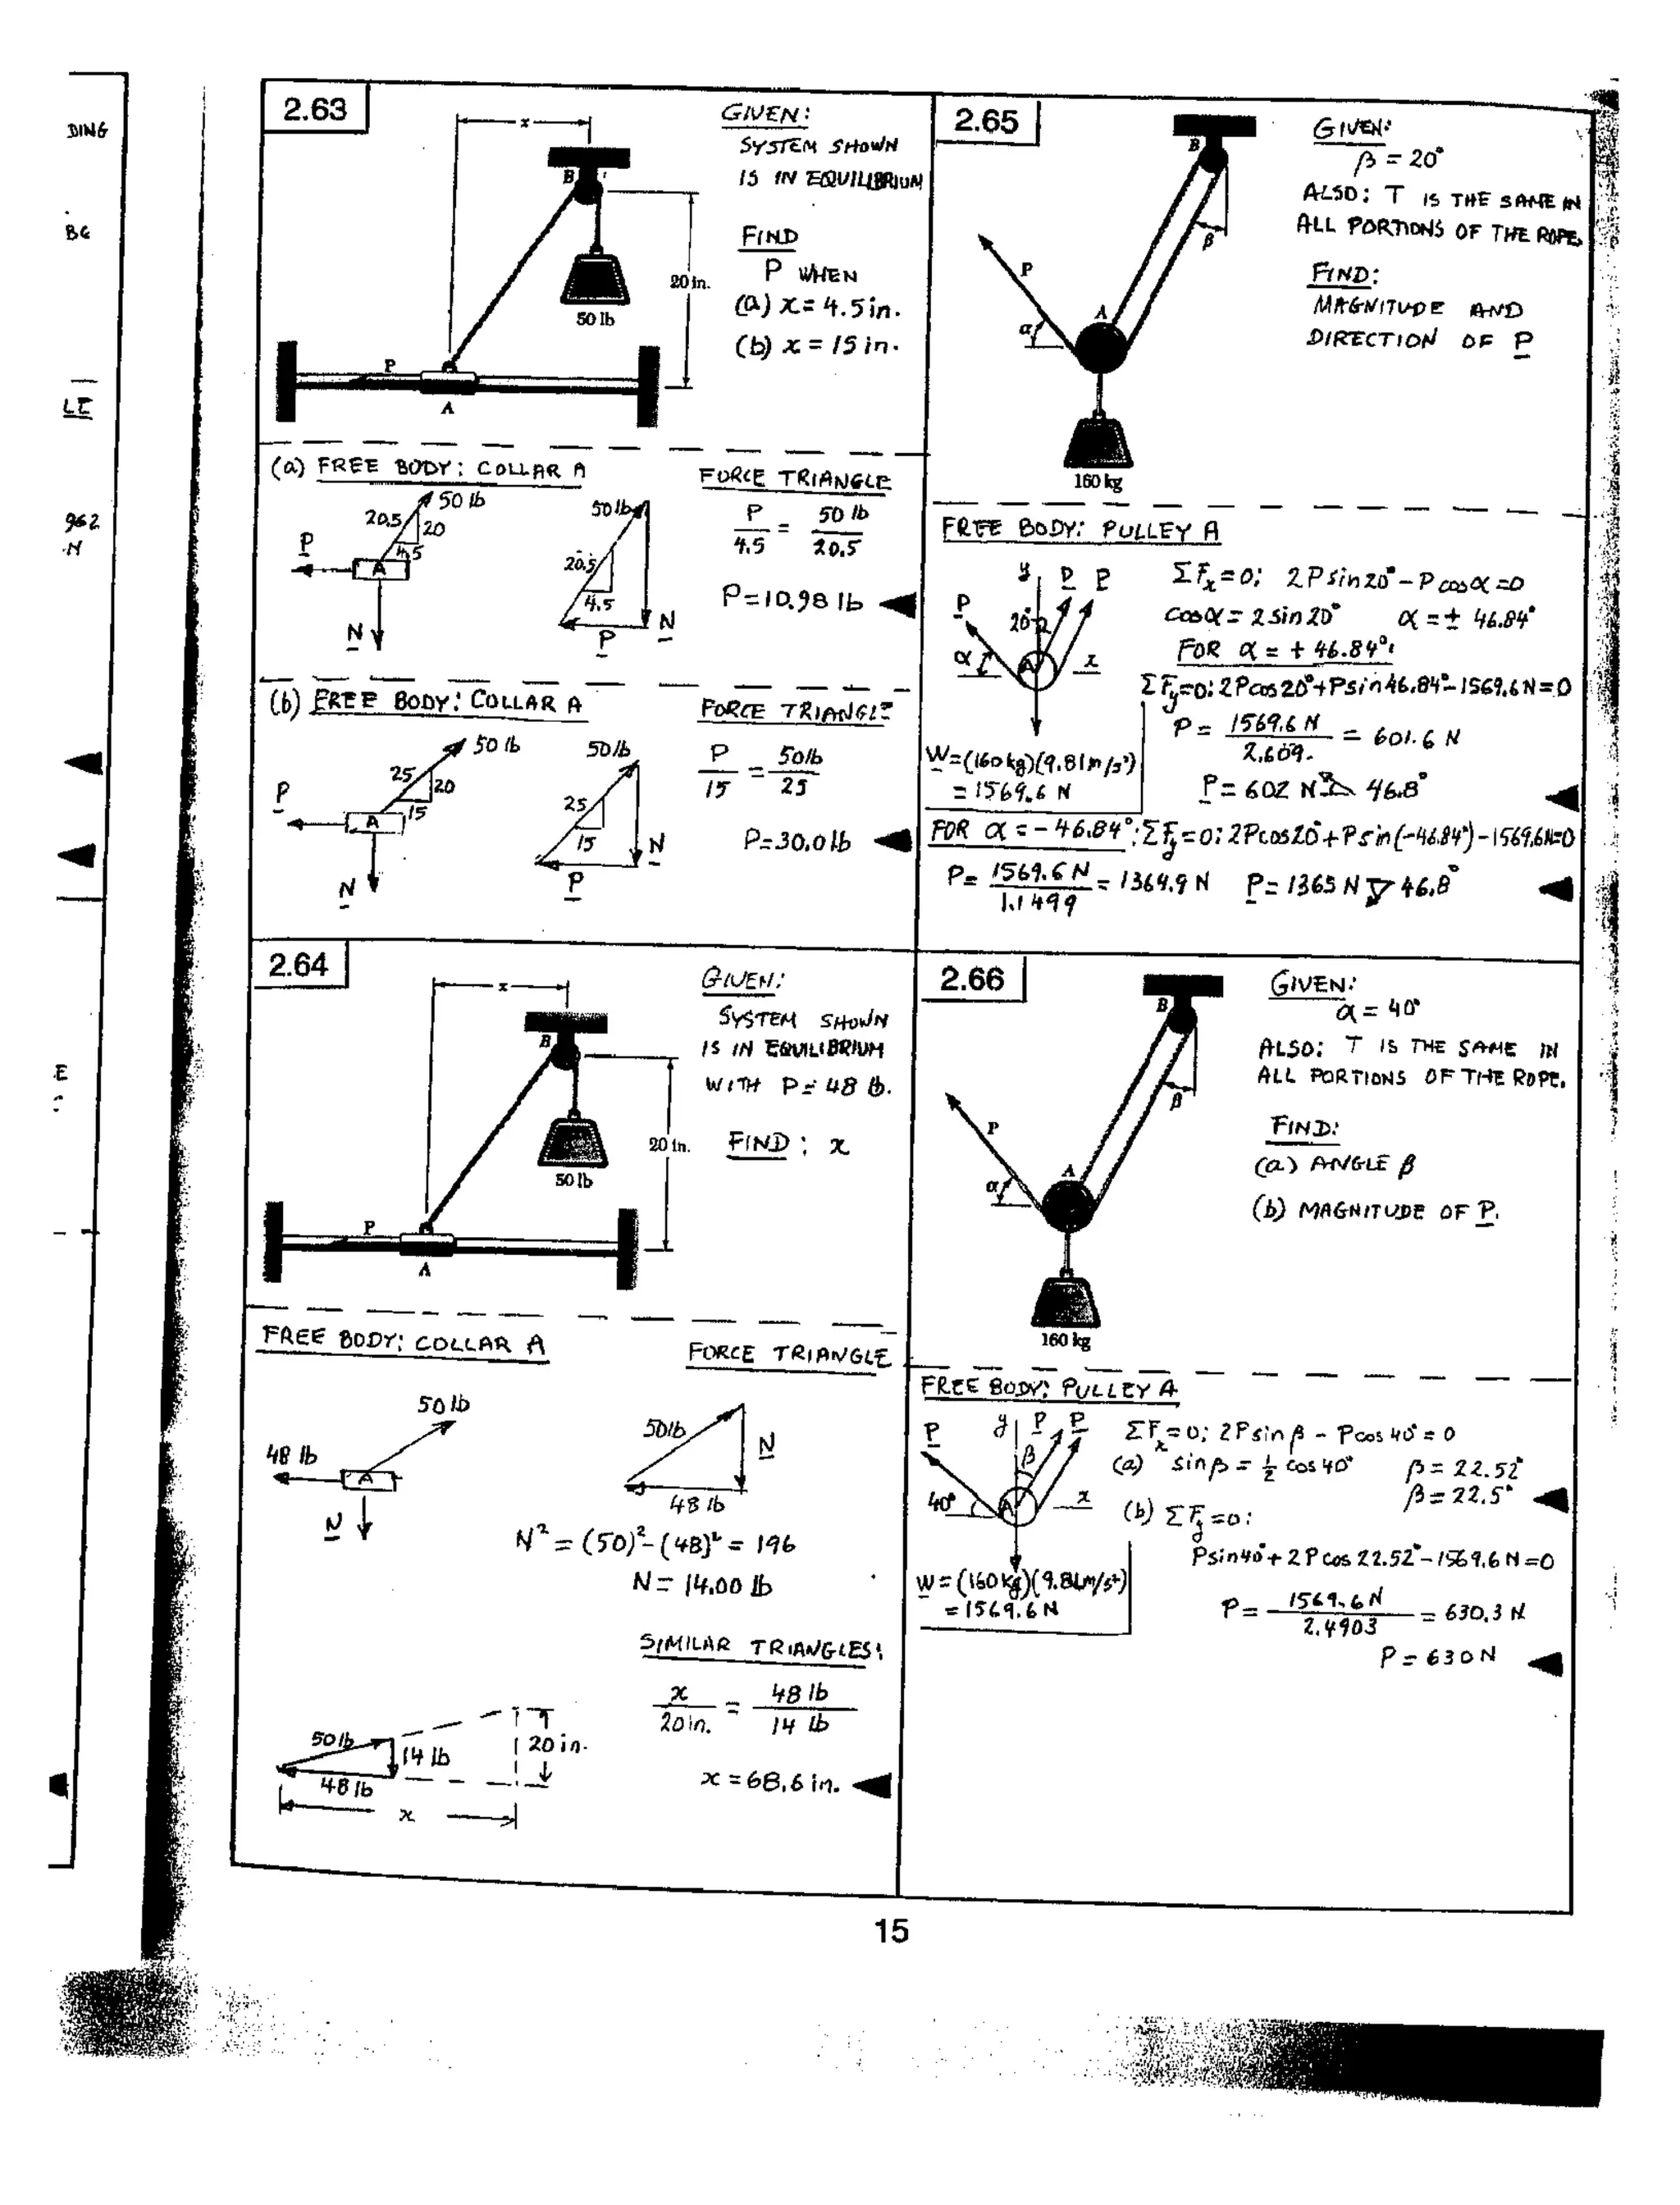 DING
BC
LE
962
N
E
2.63
x
B
20 in.
50 lb
P
A
GIVEN:
SYSTEM SHOWN
IS IN EQUILIBRIUM
FIND
P WHEN
(a) x = 4.5 in.
(b) x = 15 in.
(a) FREE BODY: COLLAR A
50 lb
20.5
20
4.5
P
A
N
FORCE TRIANGLE
50 lb
20.5
4.5
N
P
P/4.5 = 50 lb/20.5
P = 10.98 lb
(b) FREE BODY: COLLAR A
50 lb
25
20
15
P
A
N
FORCE TRIANGLE
50 lb
25
15
N
P
P/15 = 50 lb/25
P = 30.0 lb
2.64
x
B
20 in.
50 lb
P
A
GIVEN:
SYSTEM SHOWN
IS IN EQUILIBRIUM
WITH P = 48 lb.
FIND: x
FREE BODY: COLLAR A
50 lb
48 lb
A
N
FORCE TRIANGLE
50 lb
N
48 lb
N² = (50)² - (48)² = 196
N = 14.00 lb
SIMILAR TRIANGLES:
x/20 in. = 48 lb/14 lb
50 lb
14 lb
20 in.
48 lb
x
x = 68.6 in.
2.65
B
β
P
A
α
160 kg
GIVEN:
β = 20°
ALSO: T IS THE SAME IN
ALL PORTIONS OF THE ROPE.
FIND:
MAGNITUDE AND
DIRECTION OF P
FREE BODY: PULLEY A
y P P
P
20°
α
A
x
W = (160 kg)(9.81 m/s²)
= 1569.6 N
ΣFx = 0: 2P sin 20° - P cos α = 0
cos α = 2 sin 20° α = ± 46.84°
FOR α = + 46.84°:
ΣFy = 0: 2P cos 20° + P sin 46.84° - 1569.6 N = 0
P = 1569.6 N/2.609 = 601.6 N
P = 602 N 46.8°
FOR α = - 46.84°: ΣFy = 0: 2P cos 20° + P sin (-46.84°) - 1569.6 N = 0
P = 1569.6 N/1.1499 = 1364.9 N P = 1365 N 46.8°
2.66
B
β
P
A
α
160 kg
GIVEN:
α = 40°
ALSO: T IS THE SAME IN
ALL PORTIONS OF THE ROPE.
FIND:
(a) ANGLE β
(b) MAGNITUDE OF P.
FREE BODY: PULLEY A
y P P
P
β
40°
A
x
W = (160 kg)(9.81 m/s²)
= 1569.6 N
ΣFx = 0: 2P sin β - P cos 40° = 0
(a) sin β = ½ cos 40° β = 22.52°
β = 22.5°
(b) ΣFy = 0:
P sin 40° + 2P cos 22.52° - 1569.6 N = 0
P = 1569.6 N/2.4903 = 630.3 N
P = 630 N
15